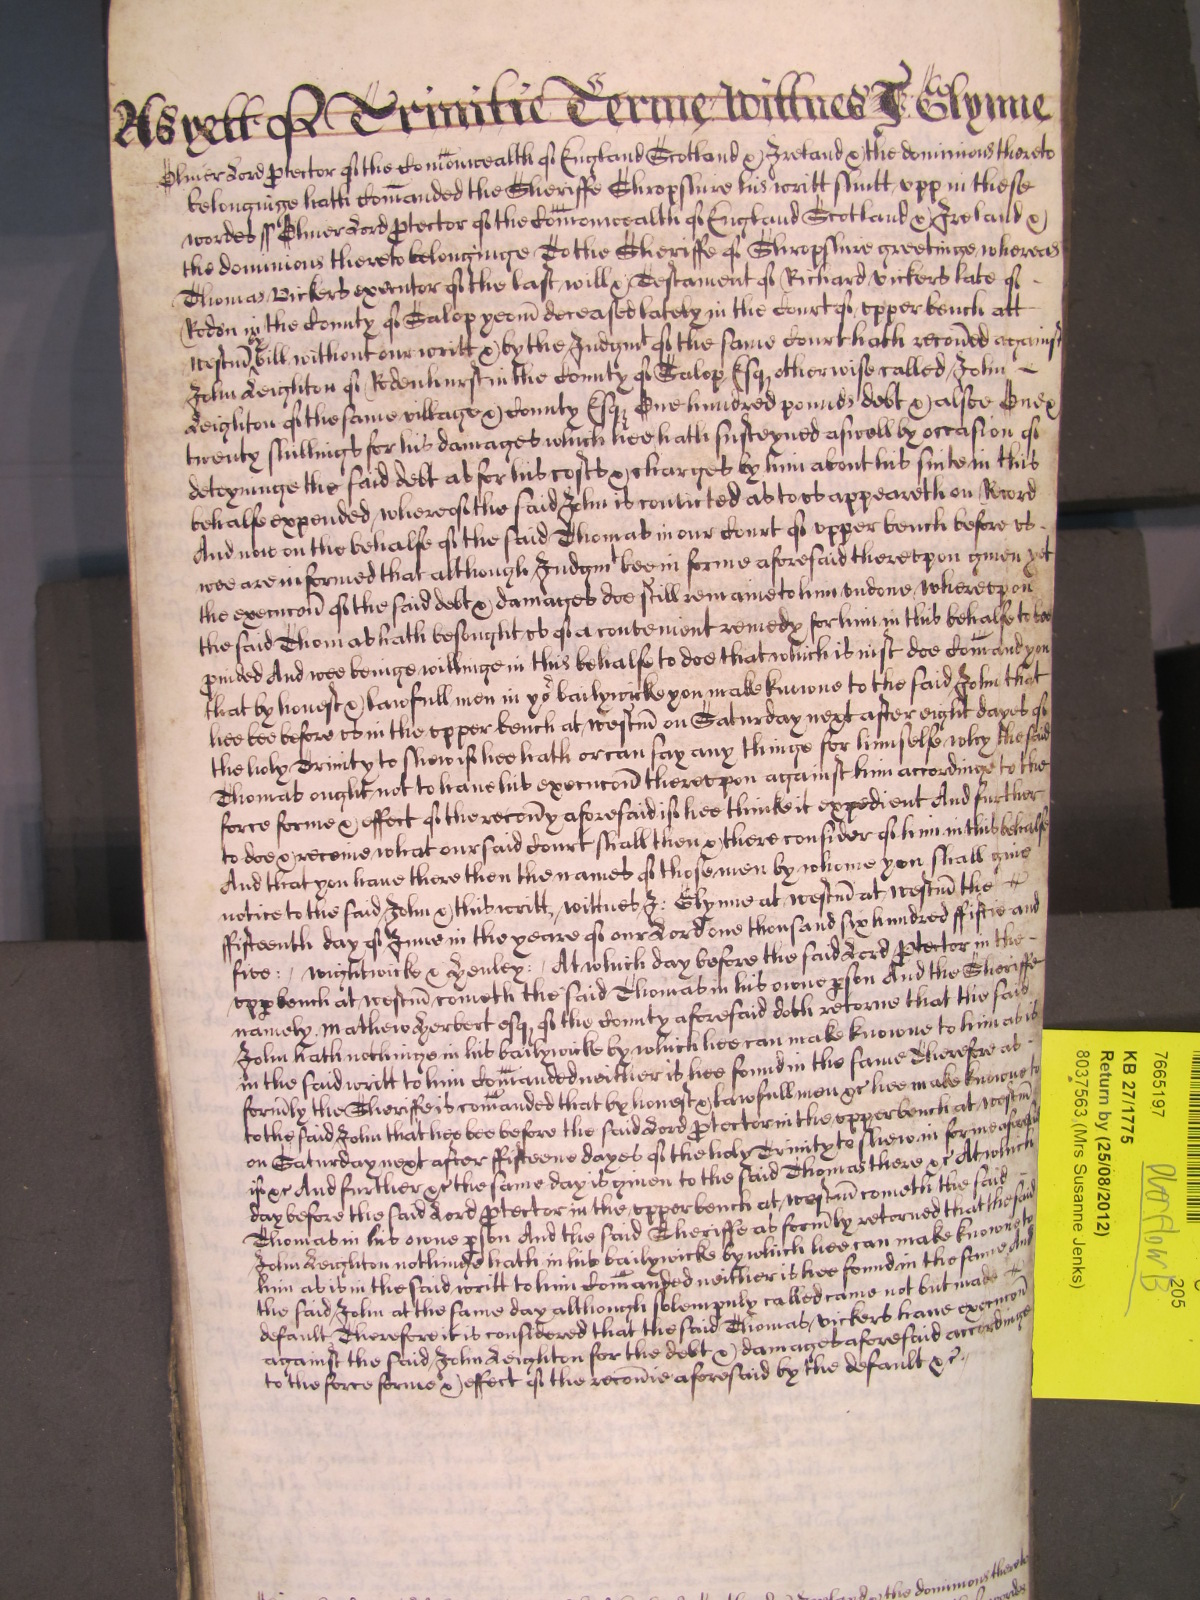 As yett of Trinitie Terme Wittnes J: Glynne
Oliver Lord Ptector of the Comonwealth of England Scotland & Ireland & the dominions thereto
belonginge hath Comanded the Sheriffe Shropshire his writt shutt upp in these
wordes ss Oliver Lord Ptector of the Comonwealth of England Scotland & Ireland &
the dominions thereto belonginge To the Sheriffe of Shropshire greetinge whereas
Thomas Vickers executor of the last will & Testament of Richard Vickers late of
Rodon in the County of Salop yeom deceased lately in the Court of upper bench att
Westm by bill without our writt & by the Judgmt of the same Court hath recoued against
John Leighton of Rodenhurst in the County of Salop Esq otherwise called John
Leighton of the same village & County Esq One hundred pounds debt & alsoe One &
twenty shillings for his damages which hee hath susteyned aswell by occasion of
deteyninge the said debt as for his costs & charges by him about his suite in this
behalfe expended whereof the said John is convicted as to us appeareth on Record
And now on the behalfe of the said Thomas in our Court of upper bench before us
wee are informed that although Judgmt bee in forme aforesaid thereupon given yet
the execucon of the said debt & damages doe still remaine to him undone whereupon
the said Thomas hath besought us of a convenient remedy for him in this behalfe to bee
pvided And wee beinge willinge in this behalfe to doe that which is iust doe Comand you
that by honest & lawfull men in yor bailywicke you make knowne to the said John that
hee bee before us in the upper bench at Westm on Saturday next after eight dayes of
the holy Trinity to shew if hee hath or can say any thinge for himselfe why the said
Thomas ought not to have his execucon thereupon against him accordinge to the
force forme & effect of the recouy aforesaid if hee thinke it expedient And further
to doe & receive what our said Court shall then & there consider of him in this behalfe
And that you have there then the names of those men by whome you shall give
notice to the said John & this writt, Wittnes J: Glynne at Westm at Westm the
ffifteenth day of June in the yeare of our Lord one thousand six hundred ffiftie and
five :/ Wightwicke & Henley :/ At which day before the said Lord Ptector in the
upp bench at Westm cometh the said Thomas in his owne pson And the Sheriffe
namely Mathew Herbert esq of the County aforesaid doth retorne that the said
John hath nothinge in his bailywicke by which hee can make knowne to him as is
in the said writt to him Comanded neither is hee found in the same Therefore as
formly the Sheriffe is comanded that by honest & lawfull men &c hee make knowne to
to the said John that hee bee before the said Lord Ptector in the upper bench at Westm
on Saturday next after ffifteene dayes of the holy Trinity to shew in forme aforesaid
if &c And further &c the same day is given to the said Thomas there &c At which
day before the said Lord Ptector in the upper bench at Westm cometh the said
Thomas in his owne pson And the said Sheriffe as formly retorned that the said
John Leighton nothinge hath in his bailywicke by which hee can make knowne to
him as is in the said writt to him Comanded neither is hee found in the same And
the said John at the same day although solempnly called came not but made
default Therefore it is considered that the said Thomas Vickers have execucon
against the said John Leighton for the debt & damages aforesaid accordinge
to the force forme & effect of the recouie aforesaid by the default &c.
the dominions thereto
7665197
205
KB 27/1775
Return by (25/08/2012)
8037563 (Mrs Susanne Jenks)